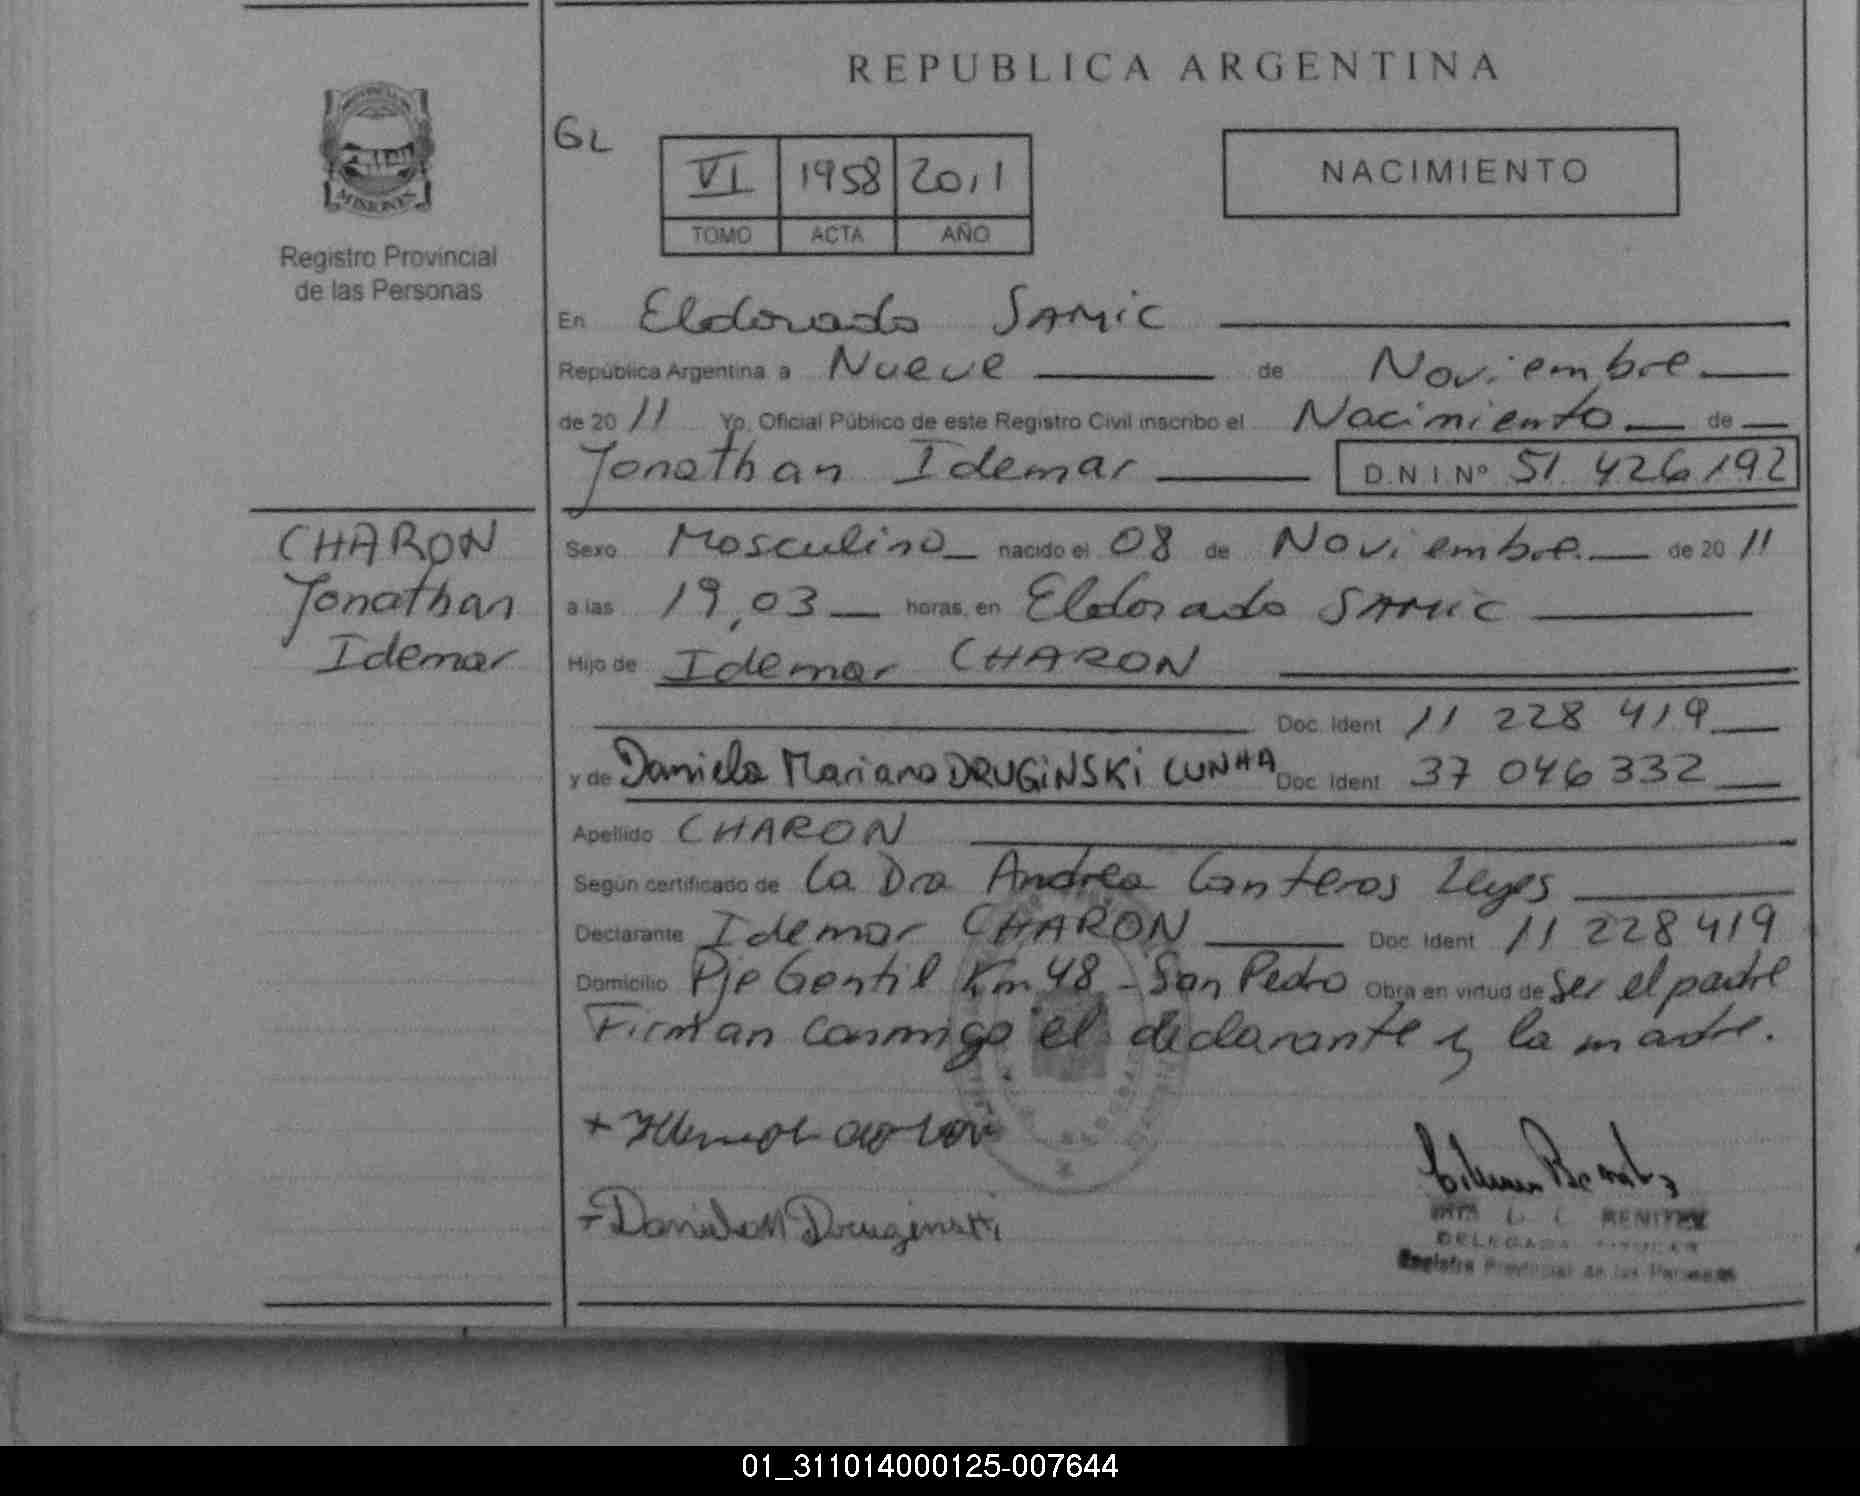 REPUBLICA ARGENTINA
GL
VI 1958 2011
TOMO ACTA AÑO
NACIMIENTO
MISIONES
Registro Provincial
de las Personas
En Eldorado SAMiC
República Argentina a Nueve de Noviembre
de 20 11 Yo, Oficial Público de este Registro Civil inscribo el Nacimiento de
Jonathan Idemar D.N.I Nº 51 426 192
CHARON
Jonathan
Idemar
Sexo Masculino nacido el 08 de Noviembre de 20 11
a las 19,03 horas, en Eldorado SAMiC
Hijo de Idemar CHARON
Doc. Ident 11 228 419
y de Daniela Mariana DRUGiNSKi CUNHA Doc. Ident 37 046 332
Apellido CHARON
Según certificado de La Dra Andrea Canteros Leyes
Declarante Idemar CHARON Doc. Ident 11 228 419
Domicilio Pje Gentil Km 48 - San Pedro Obra en virtud de ser el padre
Firman conmigo el declarante y la madre.
Daniela M Druginski
BENITEZ
DELEGADA TITULAR
Registro Provincial de las Personas
01_311014000125-007644